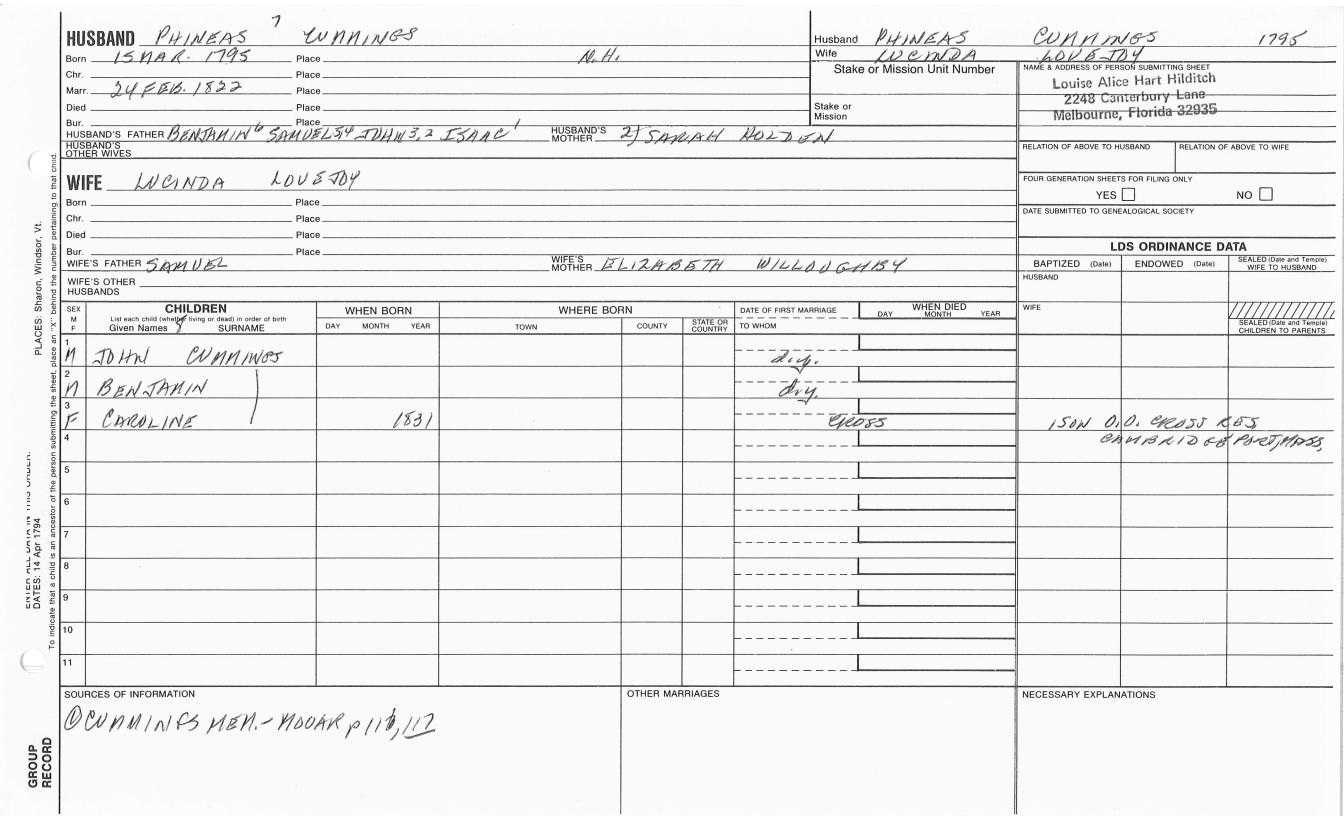 7
HUSBAND PHINEAS CUMMINGS
Born 15 MAR. 1795 Place N.H.
Chr. Place
Marr. 24 FEB. 1822 Place
Died Place
Bur. Place
HUSBAND'S FATHER BENJAMIN 6 SAMUEL 5,4 JOHN 3,2 ISAAC 1 HUSBAND'S MOTHER 2) SARAH HOLDEN
HUSBAND'S OTHER WIVES
Husband PHINEAS CUMMINGS 1795
Wife LUCINDA LOVEJOY
Stake or Mission Unit Number
Stake or Mission
NAME & ADDRESS OF PERSON SUBMITTING SHEET
Louise Alice Hart Hilditch
2248 Canterbury Lane
Melbourne, Florida 32935
RELATION OF ABOVE TO HUSBAND RELATION OF ABOVE TO WIFE
FOUR GENERATION SHEETS FOR FILING ONLY
YES NO
DATE SUBMITTED TO GENEALOGICAL SOCIETY
WIFE LUCINDA LOVEJOY
Born Place
Chr. Place
Died Place
Bur. Place
WIFE'S FATHER SAMUEL WIFE'S MOTHER ELIZABETH WILLOUGHBY
WIFE'S OTHER HUSBANDS
LDS ORDINANCE DATA
BAPTIZED (Date) ENDOWED (Date) SEALED (Date and Temple) WIFE TO HUSBAND
HUSBAND
WIFE
SEALED (Date and Temple) CHILDREN TO PARENTS
SEX M F
CHILDREN
List each child (whether living or dead) in order of birth
Given Names SURNAME
WHEN BORN
DAY MONTH YEAR
WHERE BORN
TOWN COUNTY STATE OR COUNTRY
DATE OF FIRST MARRIAGE
TO WHOM
WHEN DIED
DAY MONTH YEAR
1 M JOHN CUMMINGS d.y.
2 M BENJAMIN d.y.
3 F CAROLINE 1831 CROSS 1 SON O.D. CROSS RES
CAMBRIDGEPORT, MASS,
4
5
6
7
8
9
10
11
SOURCES OF INFORMATION
① CUMMINGS MEM. - MOOAR p 116, 117
OTHER MARRIAGES
NECESSARY EXPLANATIONS
PLACES: Sharon, Windsor, Vt.
ENTER ALL DATA IN THIS ORDER:
DATES: 14 Apr 1794
To indicate that a child is an ancestor of the person submitting the sheet, place an "X" behind the number pertaining to that child.
GROUP RECORD